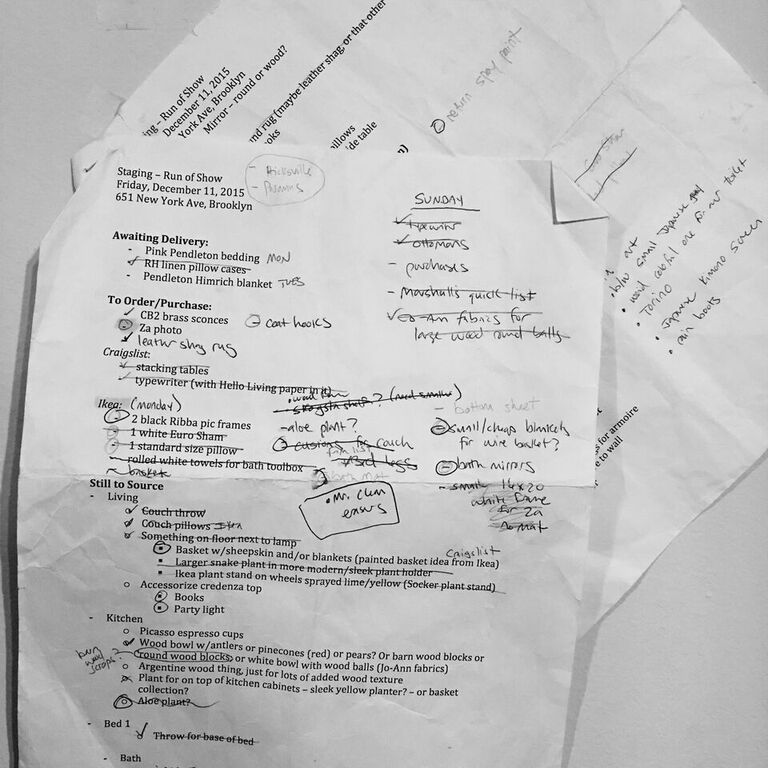 Run of Show
December 11, 2015
York Ave, Brooklyn
Mirror – round or wood?
rug (maybe leather shag, or that other
return spray paint
Staging – Run of Show
Friday, December 11, 2015
651 New York Ave, Brooklyn
- Hicksville
SUNDAY
typewriter
ottomans
- purchases
- Marshalls quick list
Jo-Ann fabrics for
large wood round balls
Awaiting Delivery:
- Pink Pendleton bedding MON
- RH linen pillow cases
- Pendleton Himrich blanket TUES
To Order/Purchase:
CB2 brass sconces
coat hooks
Za photo
leather shag rug
Craigslist:
stacking tables
typewriter (with Hello Living paper in it)
Ikea: (monday)
- 2 black Ribba pic frames
- 1 white Euro Sham
- 1 standard size pillow
- rolled white towels for bath toolbox
- basket
? (need smaller)
- aloe plant?
cusions for couch
• Mr. Clean
erasers
- bottom sheet
small/cheap blankets
for wire basket?
bath mirrors
- small 16x20
white frame
for Za
no mat
Still to Source
- Living
Couch throw
Couch pillows Ikea
Something on floor next to lamp
Basket w/sheepskin and/or blankets (painted basket idea from Ikea) Craigslist
Larger snake plant in more modern/sleek plant holder
Ikea plant stand on wheels sprayed lime/yellow (Socker plant stand)
o Accessorize credenza top
Books
Party light
- Kitchen
o Picasso espresso cups
Wood bowl w/antlers or pinecones (red) or pears? Or barn wood blocks or
round wood blocks, or white bowl with wood balls (Jo-Ann fabrics)
barn wood scraps?
o Argentine wood thing, just for lots of added wood texture
Plant for on top of kitchen cabinets – sleek yellow planter? – or basket
collection?
Aloe plant?
- Bed 1
Throw for base of bed
- Bath
art
• b/w small Japanese
• Torino
• Japanese Kimono screen
• rain boots
for armoire
to wall